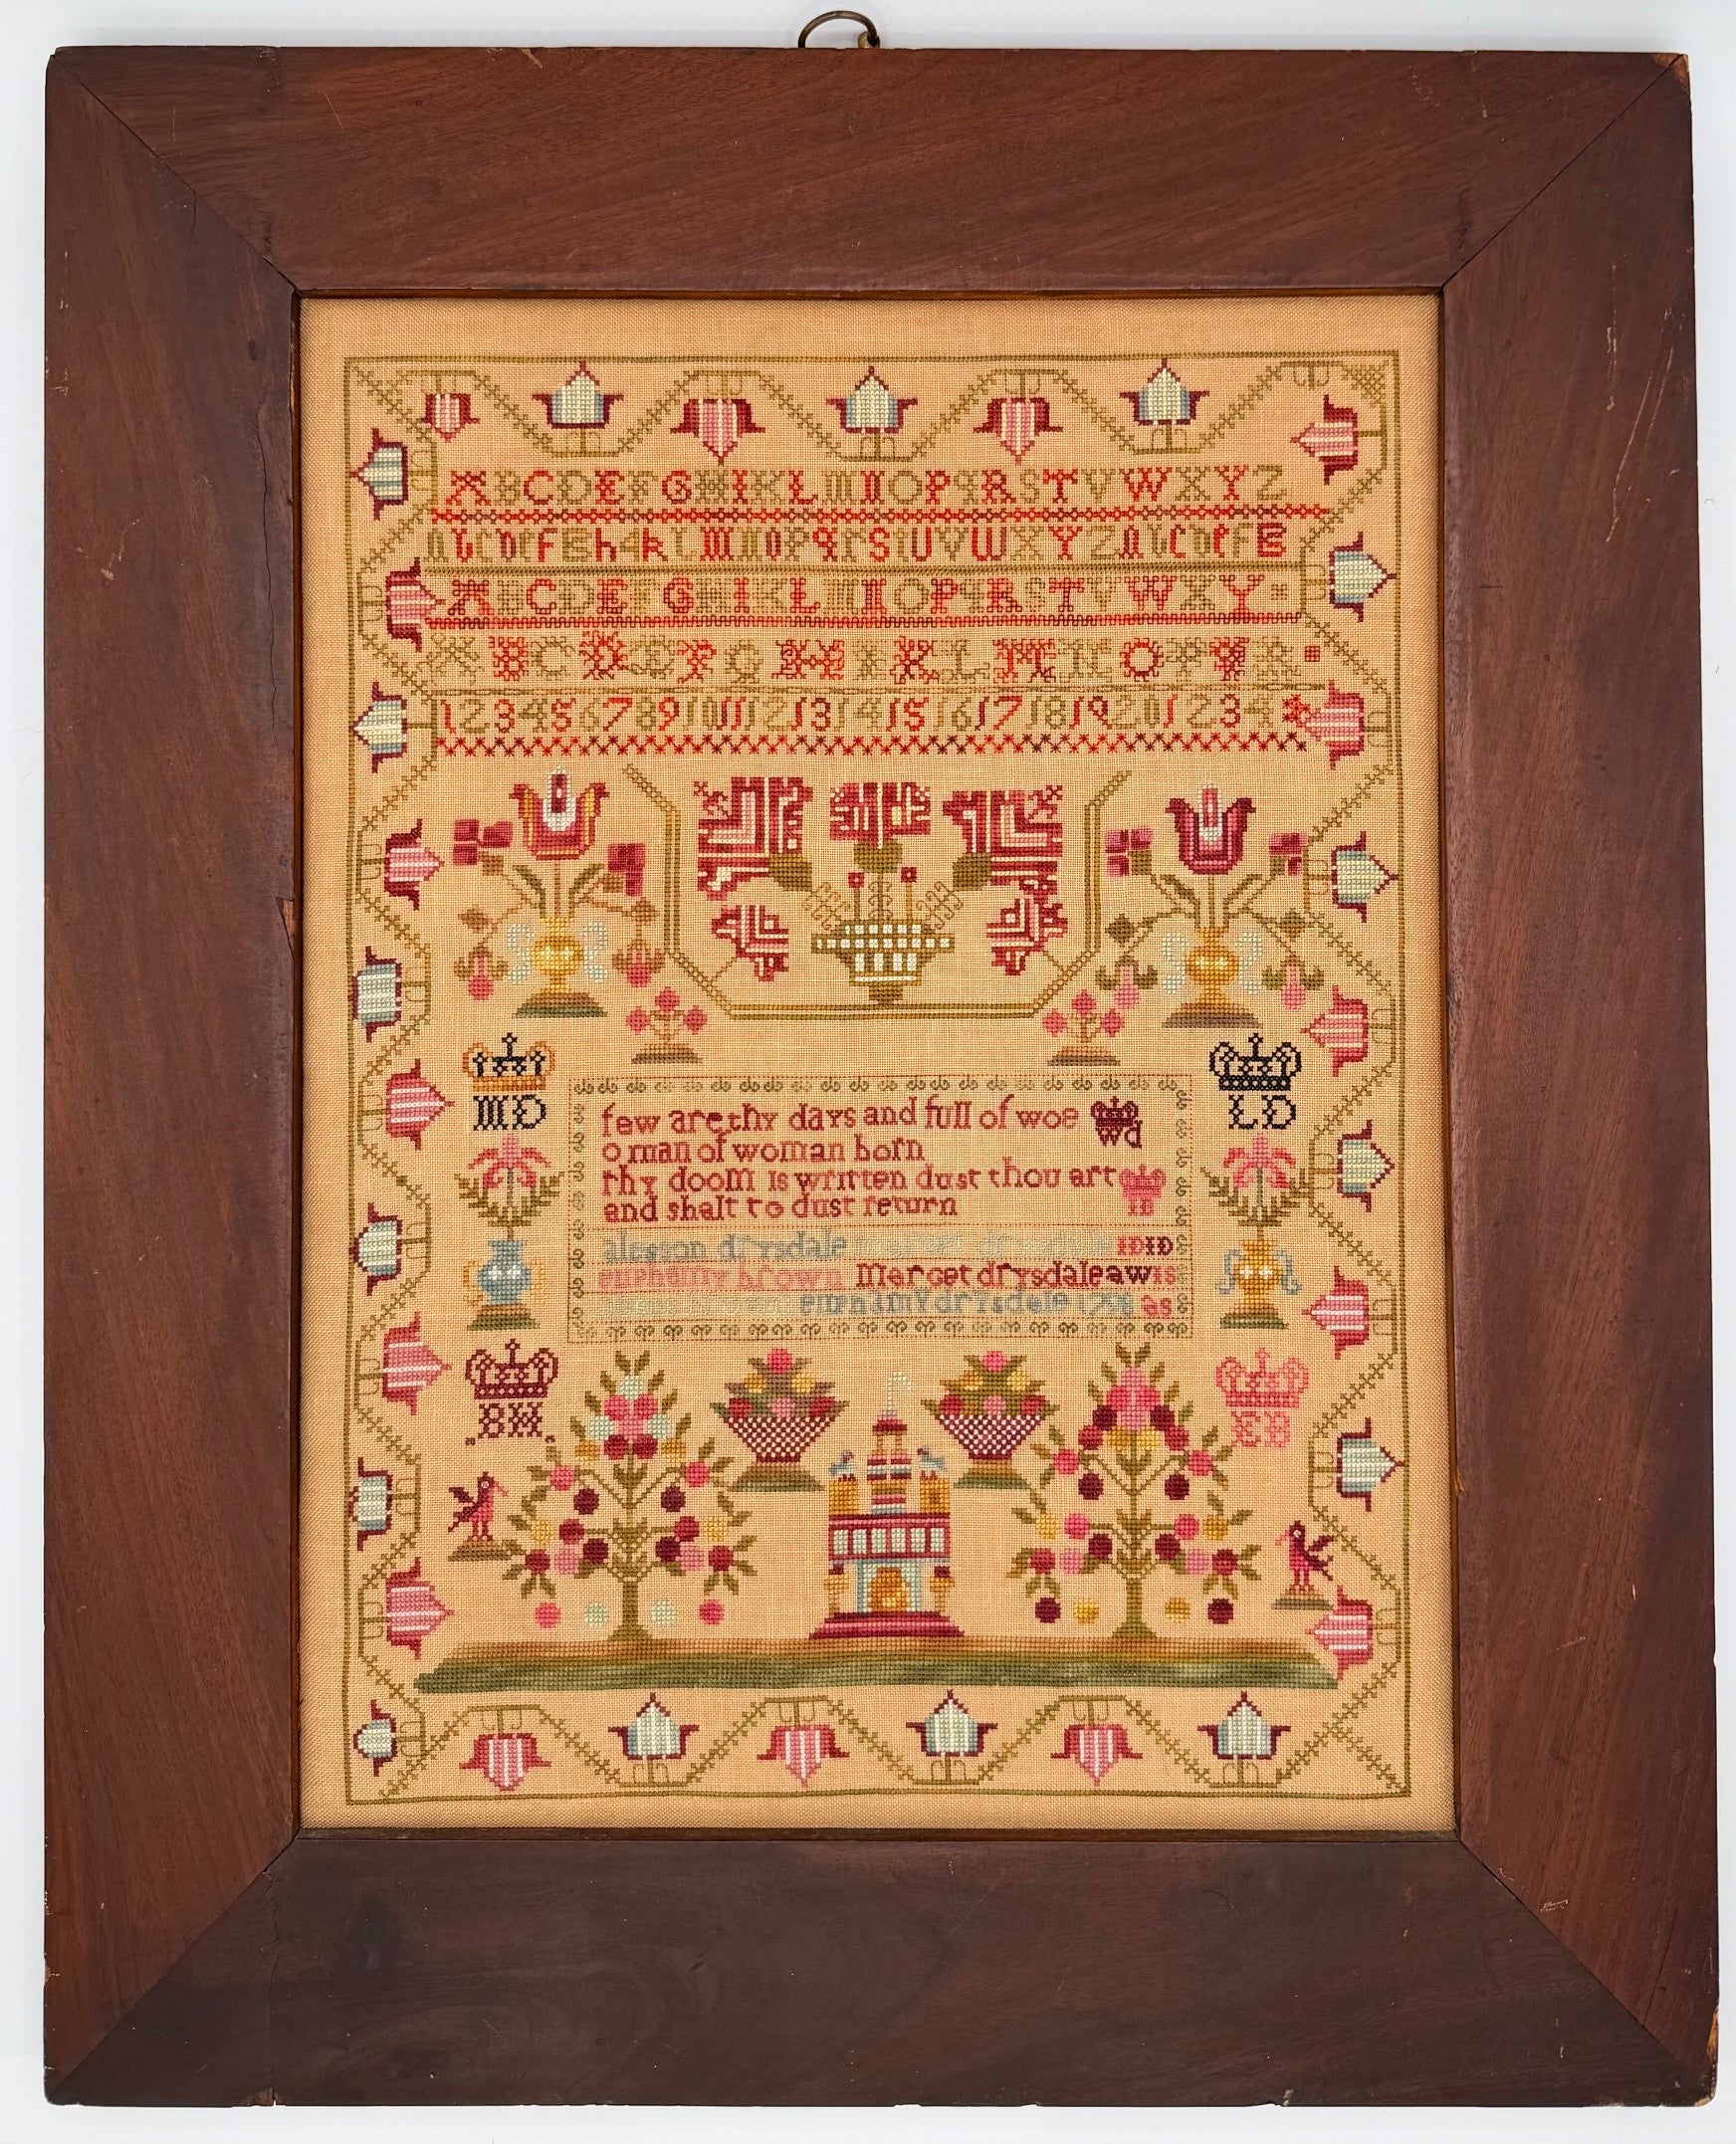 ABCDEFGHIKLMNOPQRSTVWXYZ
abcdefghikLMNOPqrSTUVWXYZabcdef
ABCDEFGHIKLMNOPQRSTVWXY
ABCDEFGHIKLMNOPR
1234567891011121314151617181920 1234
MD
LD
few are thy days and full of woe
Wd
o man of woman born
thy doom is written dust thou art
and shalt to dust return
alesson drysdale drysdale IDID
euphemy brown Marget drysdale awIS
drysdale as
BH
EB